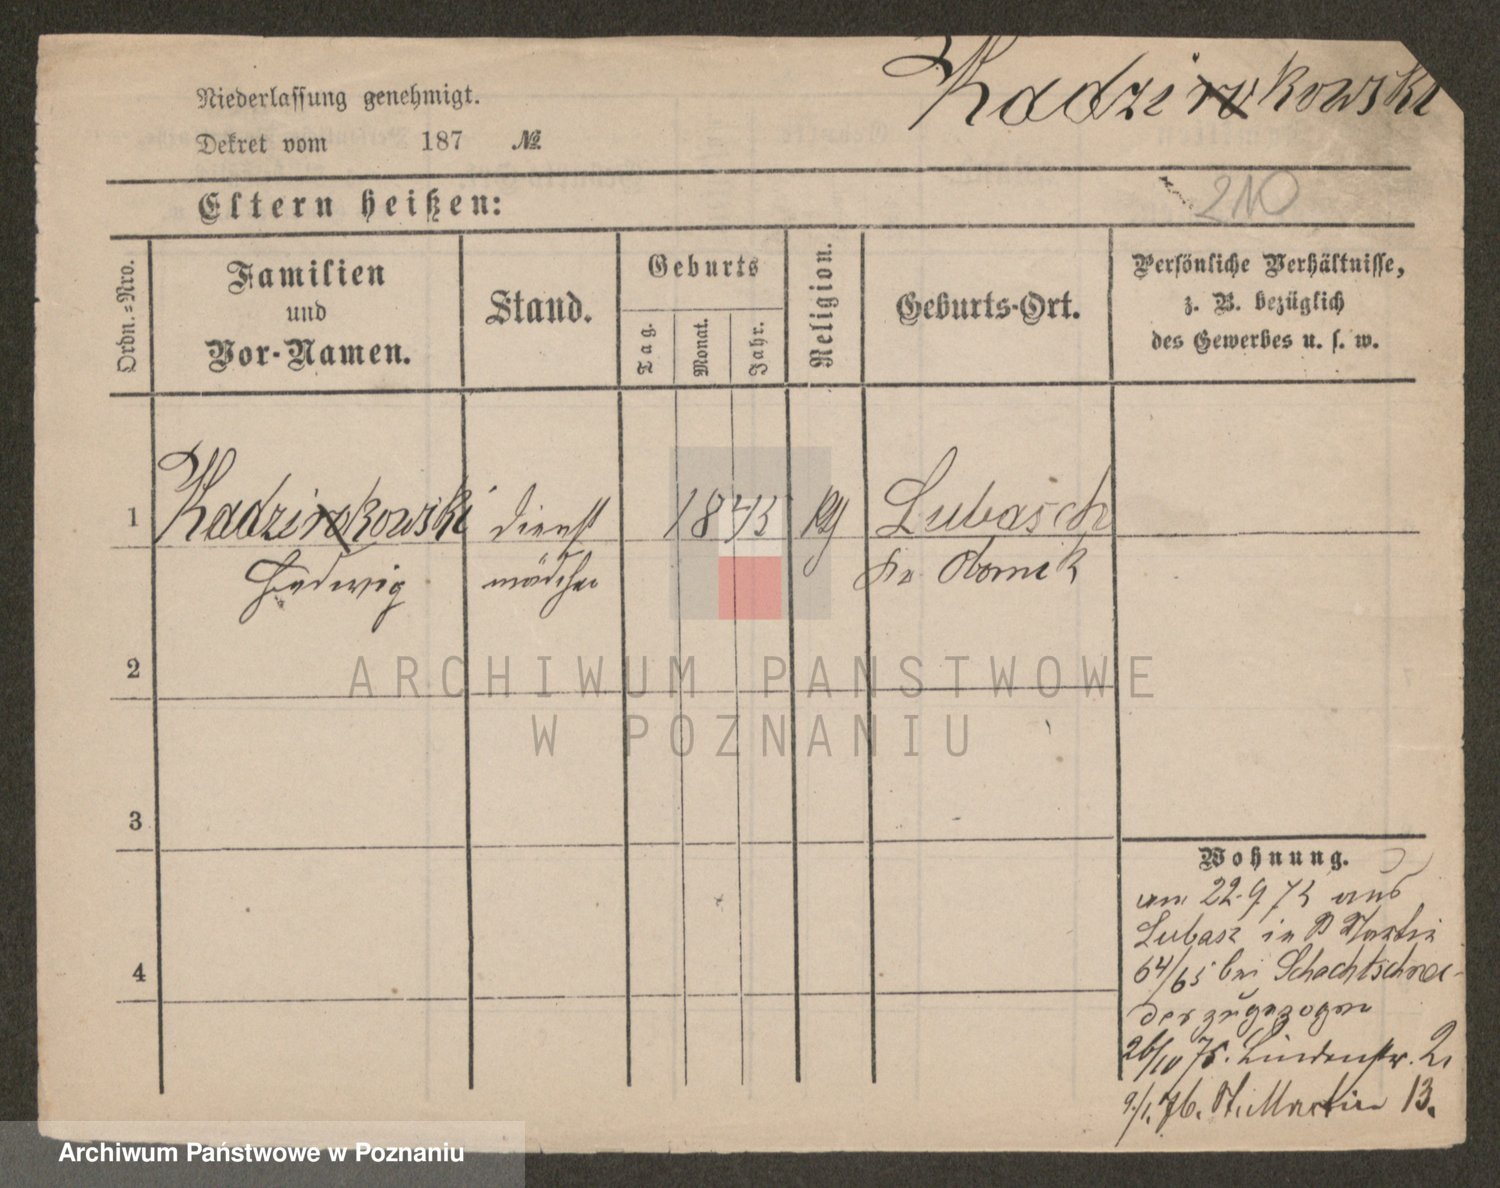 Kadzikowski
Niederlassung genehmigt.
Dekret vom 187 №
210
Eltern heißen:
Ordn.=Nro.
Familien
und
Vor-Namen.
Stand.
Geburts
Tag.
Monat.
Jahr.
Religion.
Geburts-Ort.
Persönliche Verhältnisse,
z. B. bezüglich
des Gewerbes u. s. w.
1 Kadzikowski dienst 1843 Lubasch
Hedwig mädchen Kr Obornik
2
3
4
Wohnung.
am 22.9 73 aus
Lubasz in St Martin
64/65 bei Schachtschnei-
der zugezogen
26/10 75. Lindenstr. 2.
9./1. 76. St. Martin 13.
ARCHIWUM PAŃSTWOWE
W POZNANIU
Archiwum Państwowe w Poznaniu